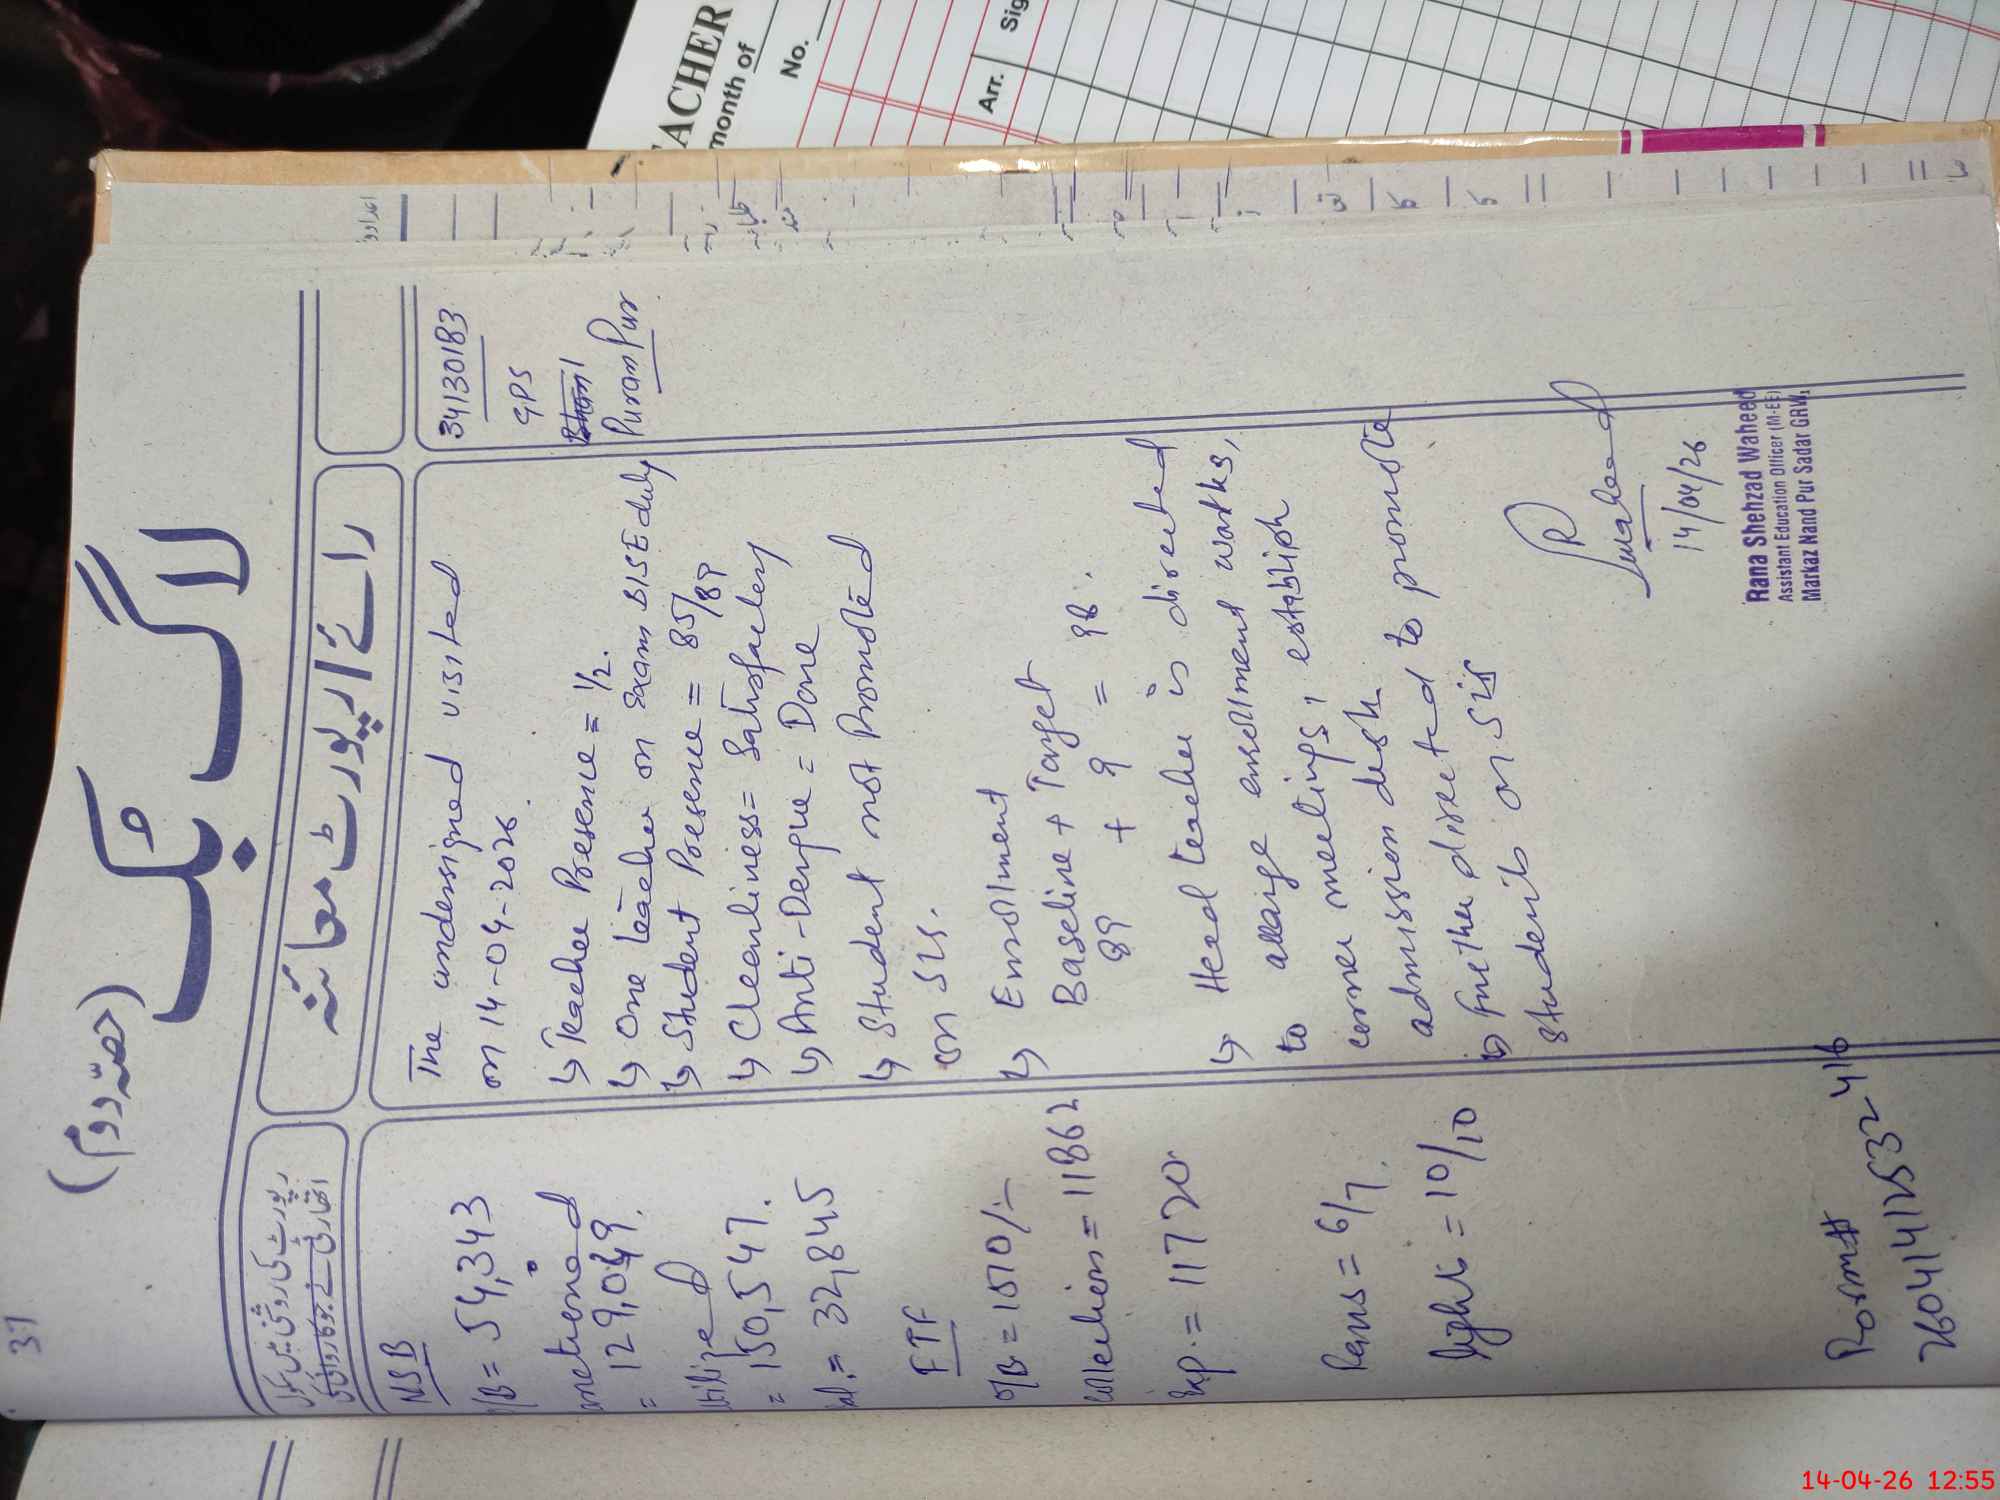 37
(حصّہ دوم)
لاگ بُک
رپورٹ کی روشنی میں سکول
اتھارٹی نے جو کاروائی کی
رائے / رپورٹ معائنہ
34130183
GPS
Puram Pur
The undersigned visited
on 14-04-2026.
↳ Teacher Presence = 1/2.
↳ One teacher on Exam BISE duty
↳ Student Presence = 85/89
↳ Cleanliness = Satisfactory
↳ Anti-Dengue = Done
↳ Student not Promoted
on SIS.
↳ Enrollment
Baseline + Target
89 + 9 = 98.
↳ Head teacher is directed
to arrange enrollment works,
corner meetings, establish
admission desk
↳ further directed to promote
students on SIS
Swaheed
14/04/26
Rana Shehzad Waheed
Assistant Education Officer (M-EE)
Markaz Nand Pur Sadar GRW
NSB
/B = 54,343
= 129,049.
= 150,547.
= 32,845
FTF
O/B = 1510/-
collection = 11862
Exp. = 11720
Fans = 6/7.
lights = 10/10
Form#
ACHER
month of
No.
Arr.
Sig
14-04-26 12:55